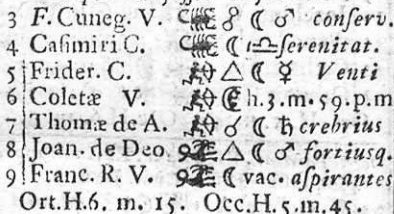 3 F. Cuneg. V. ♏ ☍ ☾ ♂ conſerv.
4 Caſimiri C. ♏ ☾ ı ♎ ſerenitat.
5 Frider. C. ♐ △ ☾ ☿ Venti
6 Coletæ V. ♐ ☾ h. 3. m. 59. p.m
7 Thomæ de A. ♐ ☌ ☾ ♄ crebrius
8 Joan. de Deo ♑ △ ☾ ♂ fortiusq.
9 Franc. R. V. ♑ ☾ vac. aſpirantes
Ort. H. 6. m. 15. Occ. H. 5. m. 45.